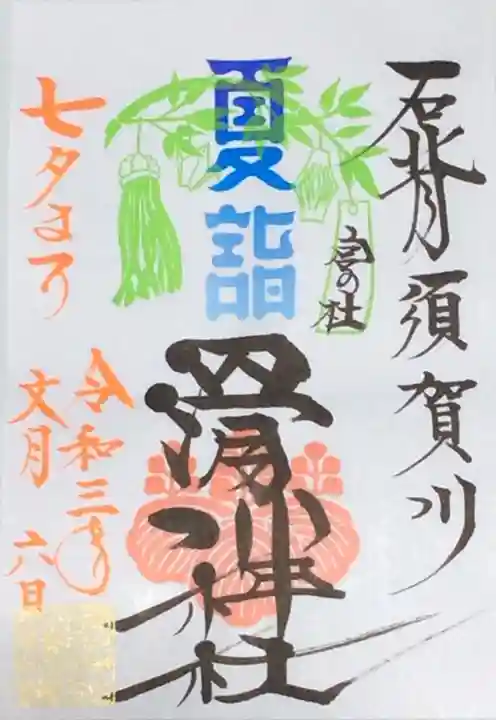 石背須賀川
夏詣
宮の杜
滑川神社
七夕まつり
令和三年
文月 六日